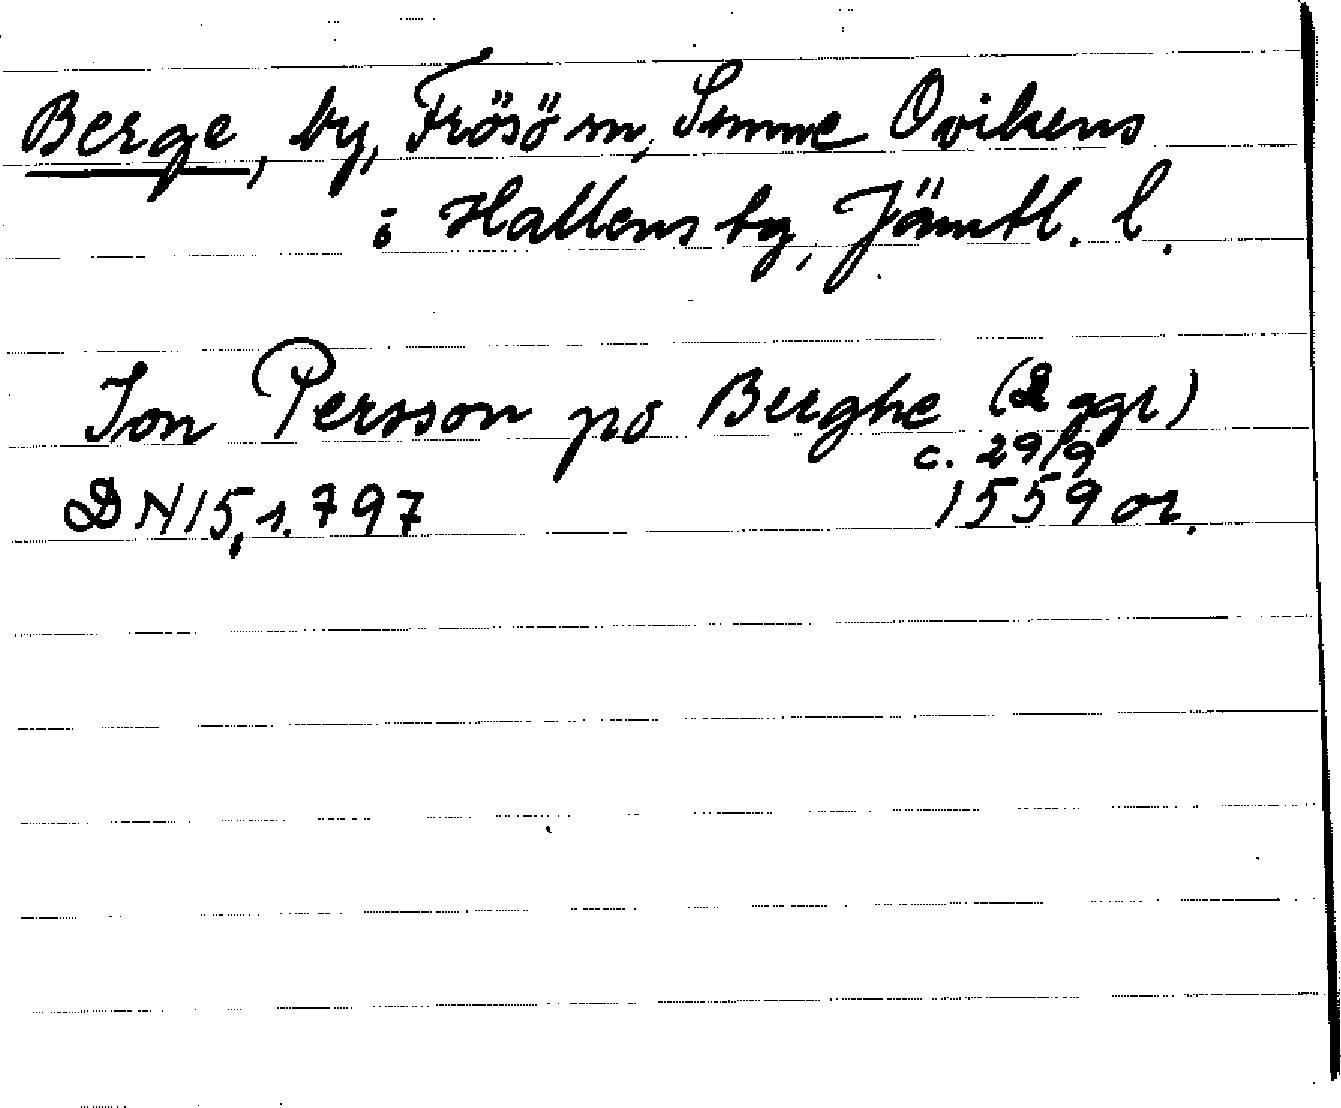 Berge, by, Frösö sn, Sunne Ovikens
o Hallens tg, Jämtl. l.
Jon Persson po Berghe (2 ggr)
c. 29/9
DN 15, s. 797 1559 or.